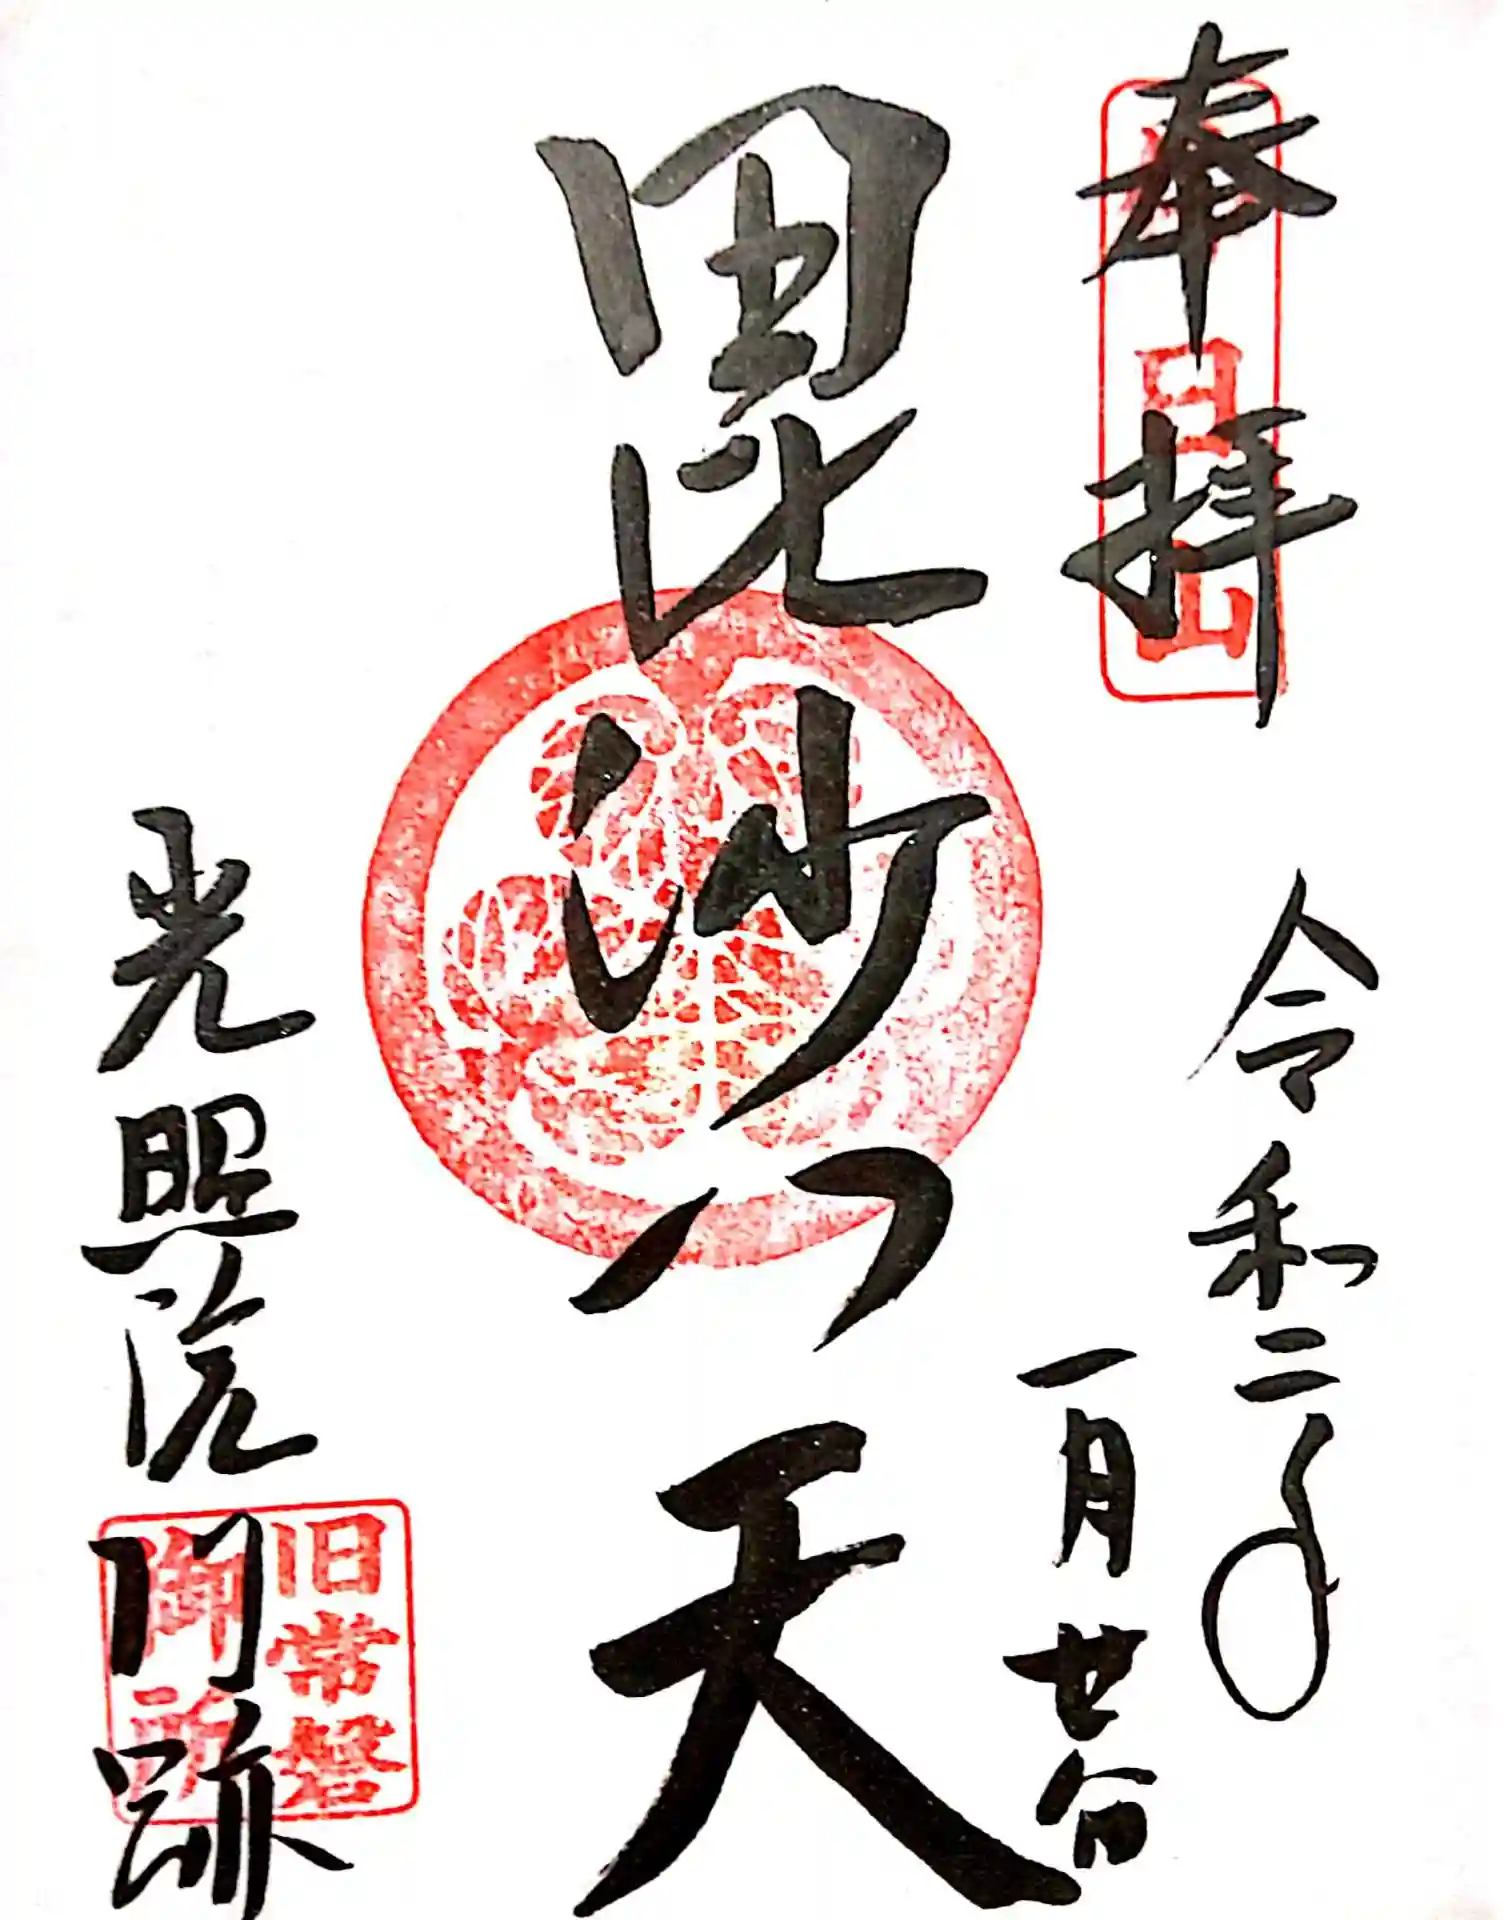 奉拝
日山
令和二年
一月廿八日
毘沙門天
光照院門跡
旧常磐
御所